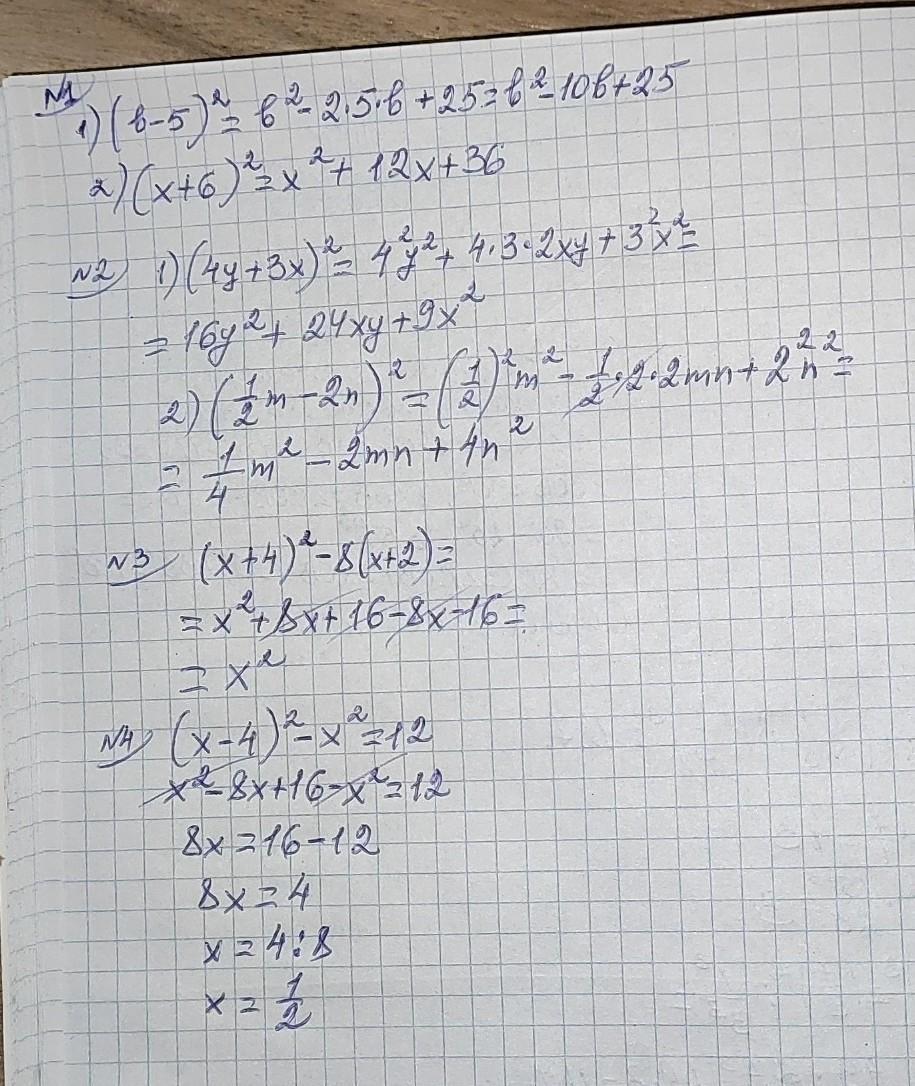 №1
1) (b-5)² = b² - 2·5·b + 25 = b² - 10b + 25
2) (x+6)² = x² + 12x + 36
№2 1) (4y+3x)² = 4²y² + 4·3·2xy + 3²x² =
= 16y² + 24xy + 9x²
2) (1/2 m - 2n)² = (1/2)² m² - 1/2·2·2mn + 2²n² =
= 1/4 m² - 2mn + 4n²
№3 (x+4)² - 8(x+2) =
= x² + 8x + 16 - 8x - 16 =
= x²
№4 (x-4)² - x² = 12
x² - 8x + 16 - x² = 12
8x = 16 - 12
8x = 4
x = 4:8
x = 1/2